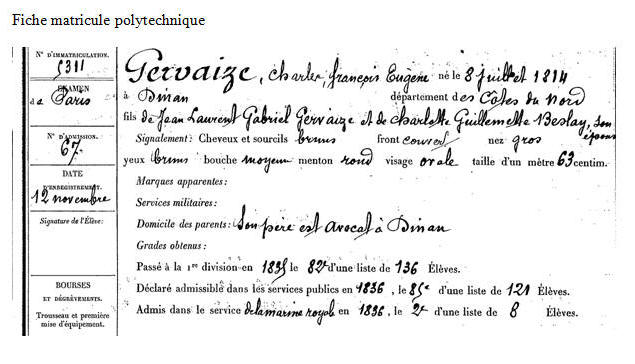 Fiche matricule polytechnique
N° D'IMMATRICULATION.
5311
EXAMEN
de Paris
N° D'ADMISSION.
67.
DATE
D'ENREGISTREMENT.
12 novembre
Signature de l'Élève:
BOURSES
ET DÉGRÈVEMENTS.
Trousseau et première
mise d'équipement.
Gervaize, charles, françois Eugène né le 8 juillet 1814
à Dinan département des Côtes du Nord
fils de Jean Laurent Gabriel Gervaize et de charlotte Guillemette Beslay, son épouse
Signalement: Cheveux et sourcils bruns front couvert nez gros
yeux bruns bouche moyenne menton rond visage ovale taille d'un mètre 63 centim.
Marques apparentes:
Services militaires:
Domicile des parents: Son père est avocat à Dinan
Grades obtenus:
Passé à la 1re division en 1835 le 82e d'une liste de 136 Élèves.
Déclaré admissible dans les services publics en 1836, le 85e d'une liste de 121 Élèves.
Admis dans le service de la marine royale en 1836, le 2e d'une liste de 8 Élèves.